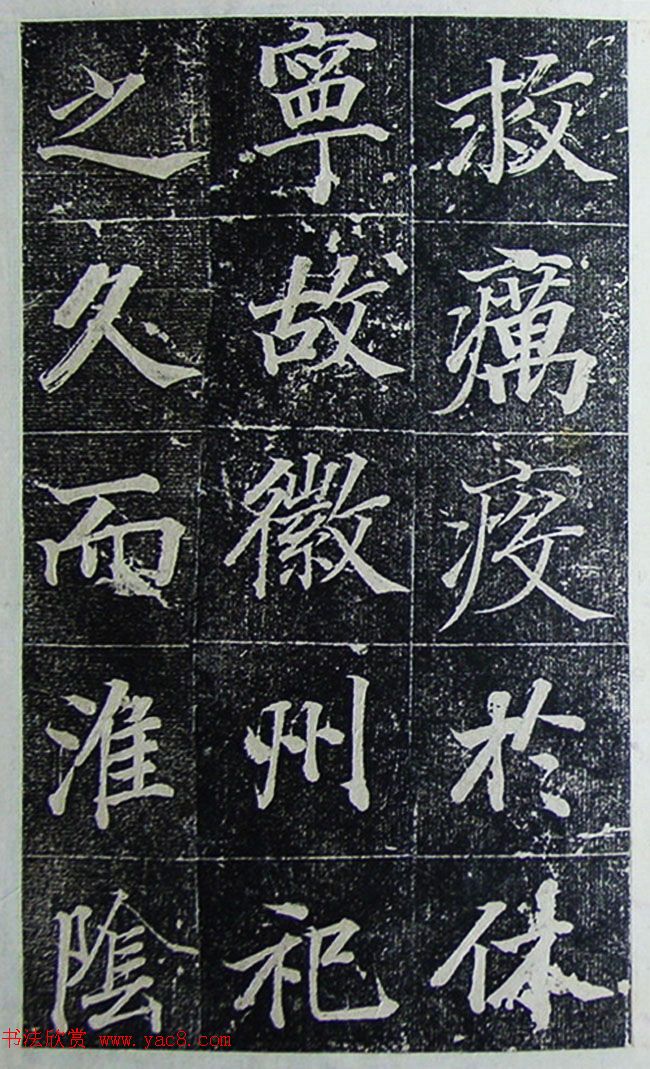 救癘疫於休
寧故徽州祀
之久而淮陰
书法欣赏 www.yac8.com